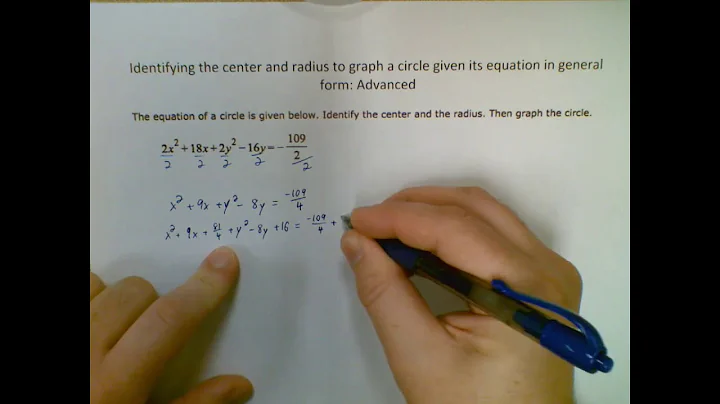 Identifying the center and radius to graph a circle given its equation in general
form: Advanced
The equation of a circle is given below. Identify the center and the radius. Then graph the circle.
2x²/2 + 18x/2 + 2y²/2 − 16y/2 = − 109/2/2
x² + 9x + y² − 8y = −109/4
x² + 9x + 81/4 + y² − 8y + 16 = −109/4 +